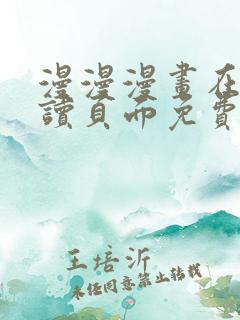 漫漫漫畫在
讀頁面免費
王培沂
未經同意禁止轉載